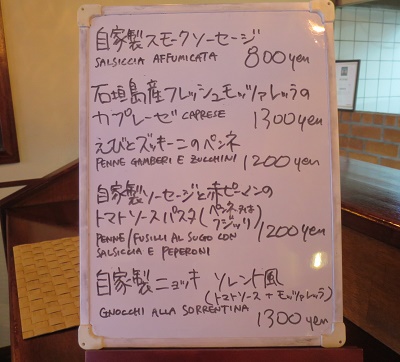 自家製スモークソーセージ
SALSICCIA AFFUMICATA 800yen
石垣島産フレッシュモッツァレラの
カプレーゼ CAPRESE 1300yen
えびとズッキーニのペンネ
PENNE GAMBERI E ZUCCHINI 1200yen
自家製ソーセージと赤ピーマンの
トマトソースパスタ(ペンネ又はフジッリ)
PENNE/FUSILLI AL SUGO CON
SALSICCIA E PEPERONI 1200yen
自家製ニョッキ ソレント風
(トマトソース+モッツァレラ)
GNOCCHI ALLA SORRENTINA
1300yen